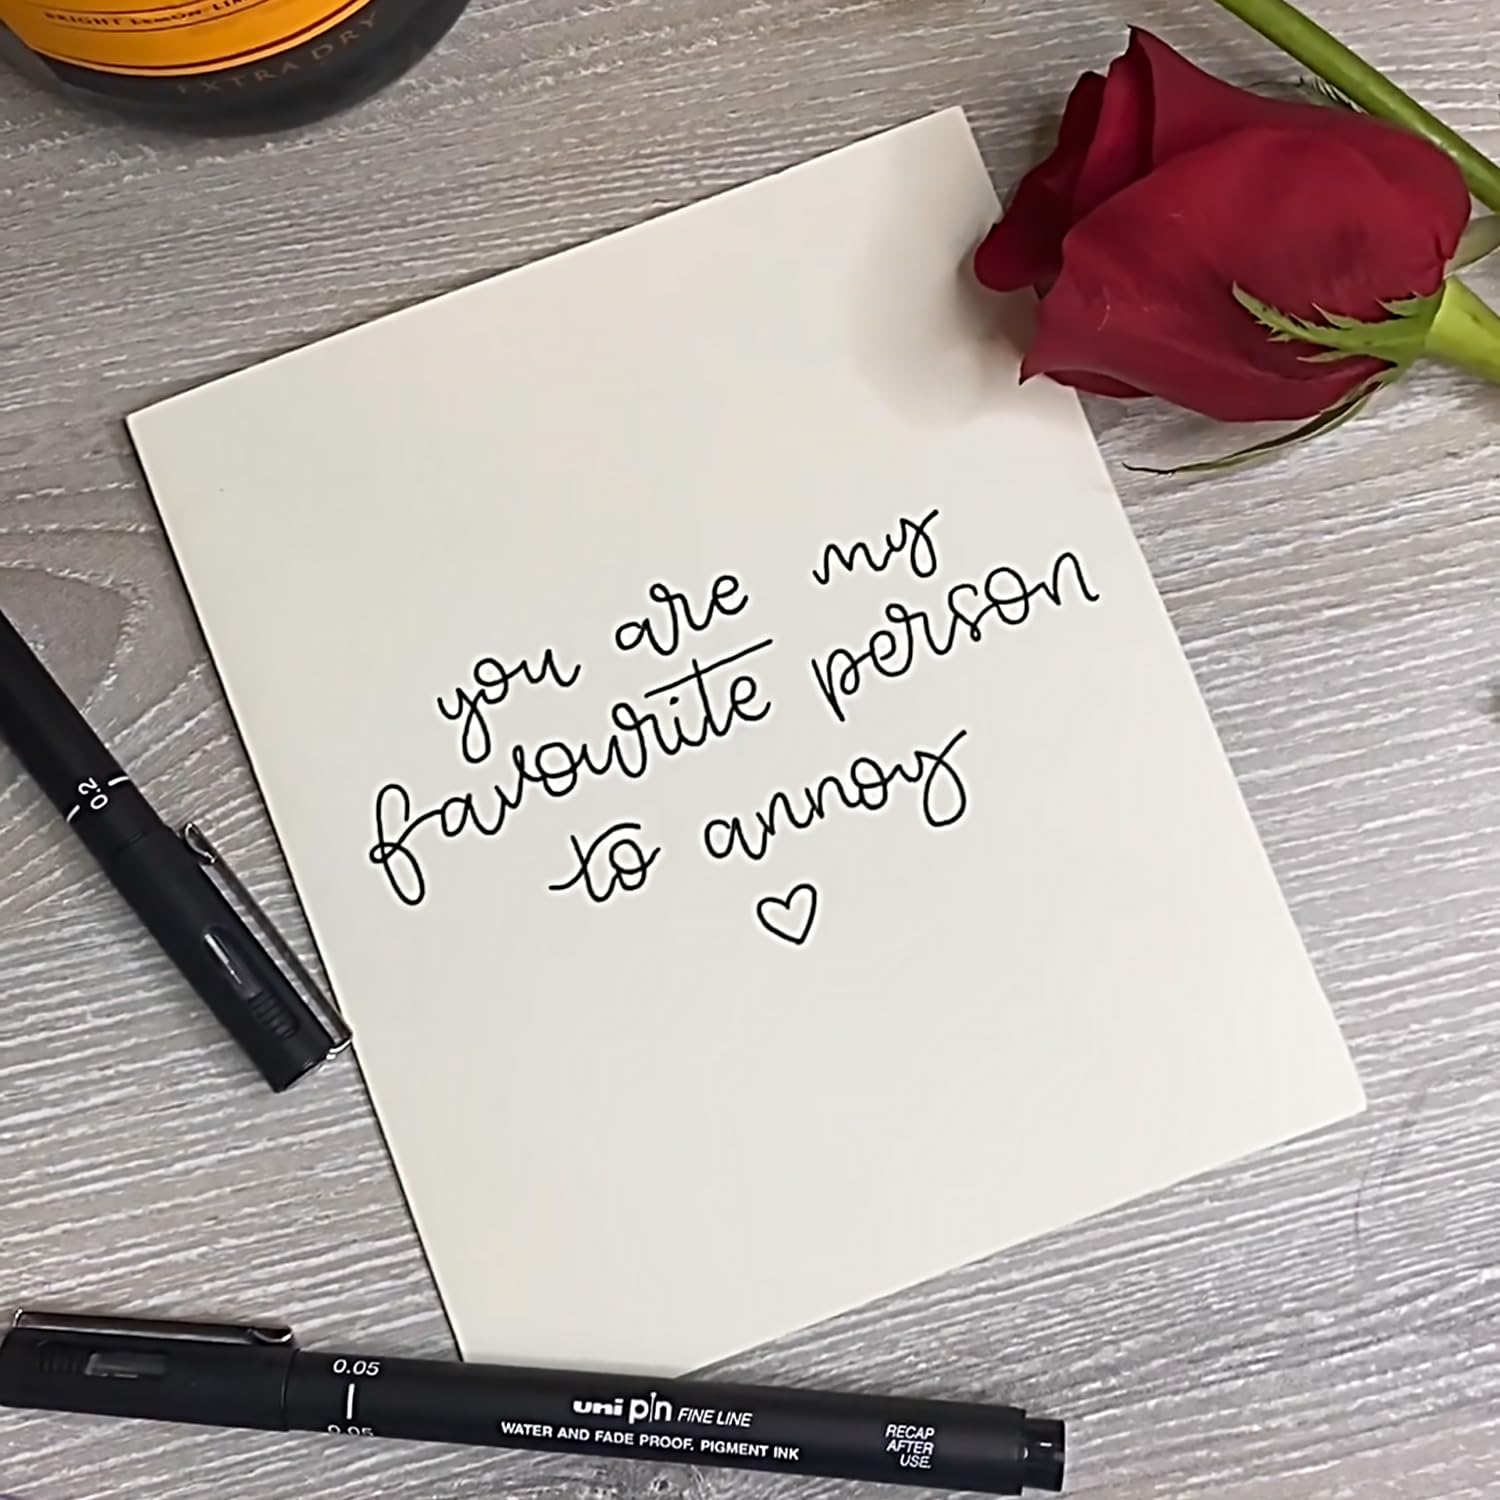 BRIGHT LEMON LIM
EXTRA DRY
you are my
favourite person
to annoy
0.2
0.05
0.05
uni pin FINE LINE
WATER AND FADE PROOF, PIGMENT INK
RECAP
AFTER
USE.